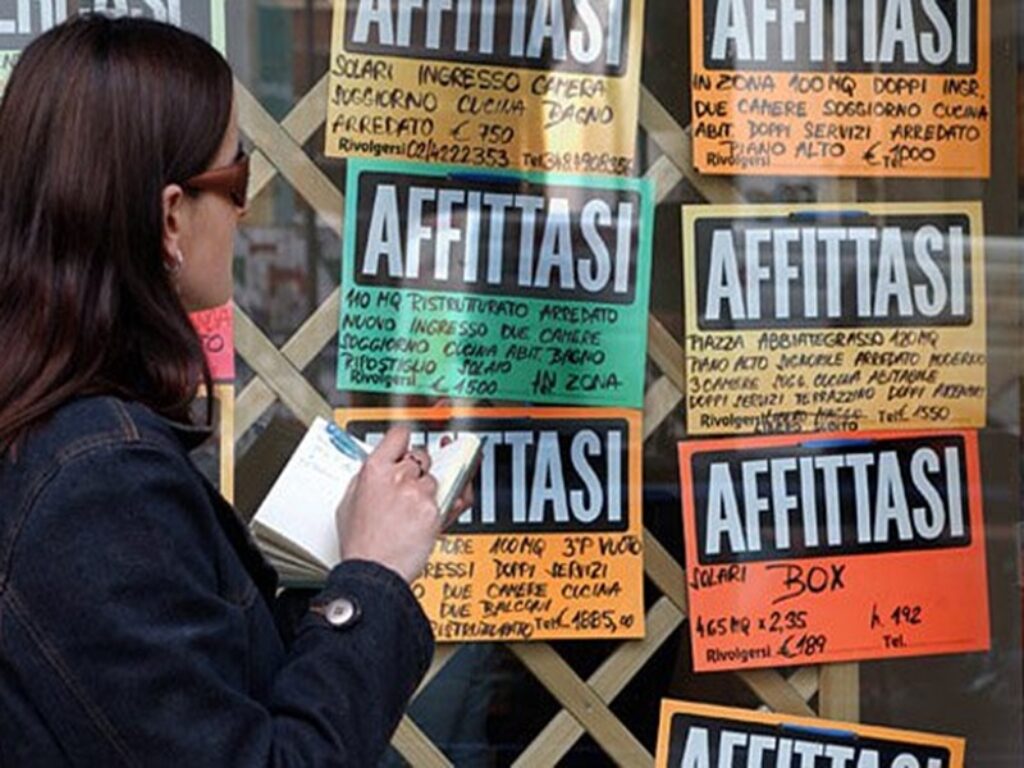 AFFITTASI
SOLARI INGRESSO CAMERA
SOGGIORNO CUCINA BAGNO
ARREDATO € 750
Rivolgersi 02/4222353 Tel.
AFFITTASI
IN ZONA 100 MQ DOPPI INGR.
DUE CAMERE SOGGIORNO CUCINA
ABIT. DOPPI SERVIZI ARREDATO
PIANO ALTO € 1000
Rivolgersi Tel.
AFFITTASI
110 MQ RISTRUTTURATO ARREDATO
NUOVO INGRESSO DUE CAMERE
SOGGIORNO CUCINA ABIT. BAGNO
RIPOSTIGLIO SOLAIO
Rivolgersi € 1500 IN ZONA
AFFITTASI
PIAZZA ABBIATEGRASSO 120 MQ
PIANO ALTO SIGNORILE ARREDATO MODERNO
3 CAMERE SOGG. CUCINA ABITABILE
DOPPI SERVIZI TERRAZZINO
Rivolgersi Tel. € 1550
TTASI
TORE 100 MQ 3°P VUOTO
GRESSI DOPPI SERVIZI
O DUE CAMERE CUCINA
DUE BALCONI
RISTRUTTURATO Tel. € 1885,00
AFFITTASI
SOLARI BOX
465 MQ x 2,35 h. 192
Rivolgersi € 189 Tel.
AFFITTASI